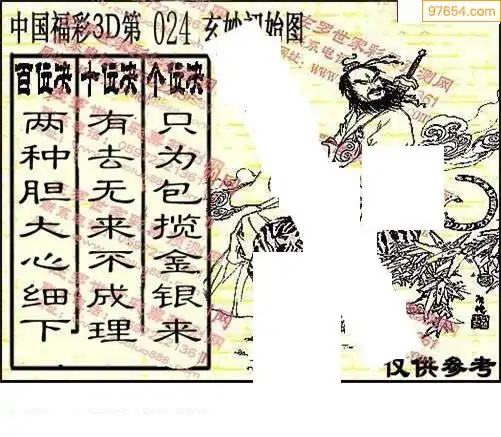 97654.com
中国福彩3D第 024 玄妙图
百位决
两种胆大心细下
十位决
有去无来不成理
个位决
只为包揽金银来
仅供参考